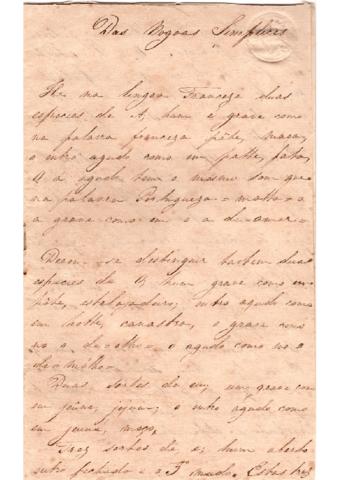 Das Vogaes Simplices
He na lingua Franceza duas
especies de A, hum e grave como
na palavra franceza pâte, massa,
o outro agudo como em patte, pata,
O á agudo tem o mesmo som que
na palavra Portugueza = matto = o
a grave como em o a de amor =
Devem se distinguir tambem duas
especies de O hum grave como em
outro agudo como
em hotte, canastra, o grave como
no o de = olho = o agudo como no o
de = molho =
Duas sortes de eu, um grave como
em jeûne, jejum; o outro agudo como
em jeune, moço,
Trez sortes de e; hum aberto
outro fechado e o 3º mudo. Estas trez